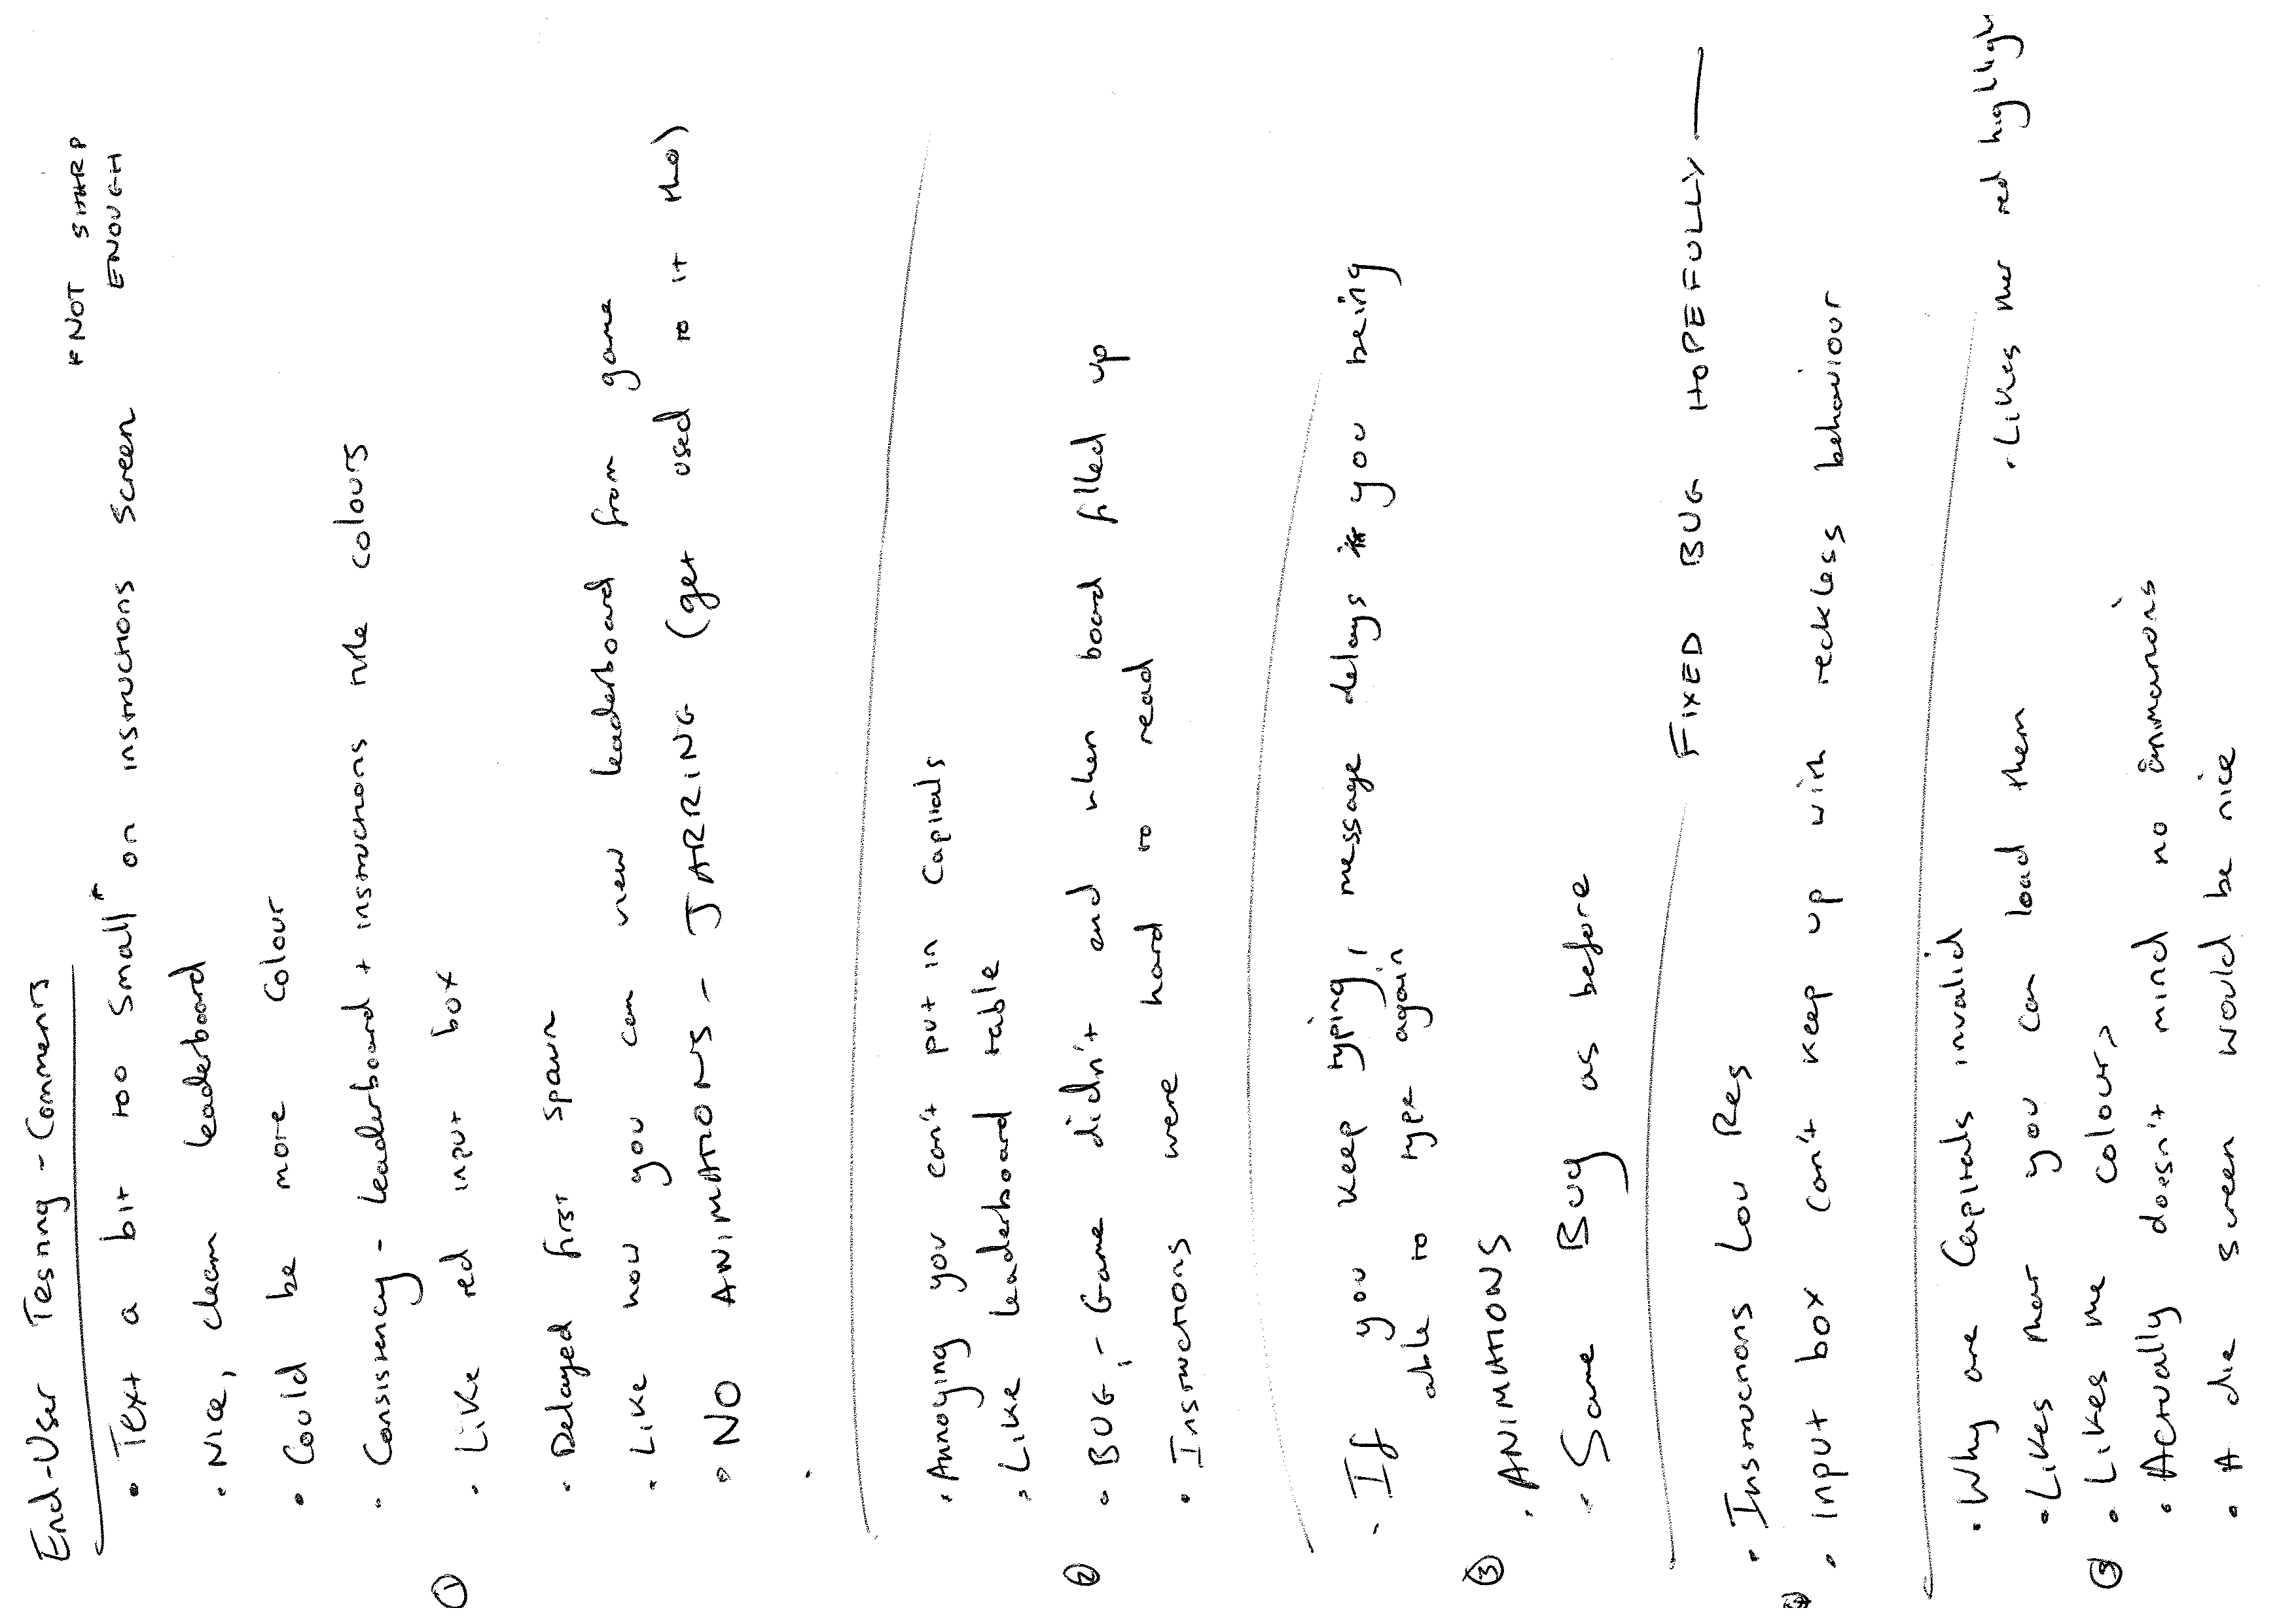 End-User Testing - Comments
*NOT SHARP
ENOUGH
• Text a bit too small* on instructions screen
• Nice, clean leaderboard
• Could be more colour
• Consistency - leaderboard + instructions title colours
①
• Like red input box
• Delayed first spawn
• Like how you can view leaderboard from game
• NO ANIMATIONS - JARRING (get used to it tho)
•
• Annoying you can't put in capitals
• Like leaderboard table
②
• BUG - Game didn't end when board filled up
• Instructions were hard to read
• If you keep typing, message delays you being
able to type again
③
• ANIMATIONS
• Same Bug as before
FIXED BUG HOPEFULLY —
• Instructions Low Res
④
• input box can't keep up with reckless behaviour
• Why are Capitals invalid
• Likes that you can load them
• Likes the red highligh
⑤
• Likes the colours
• Actually doesn't mind no animations
• A die screen would be nice